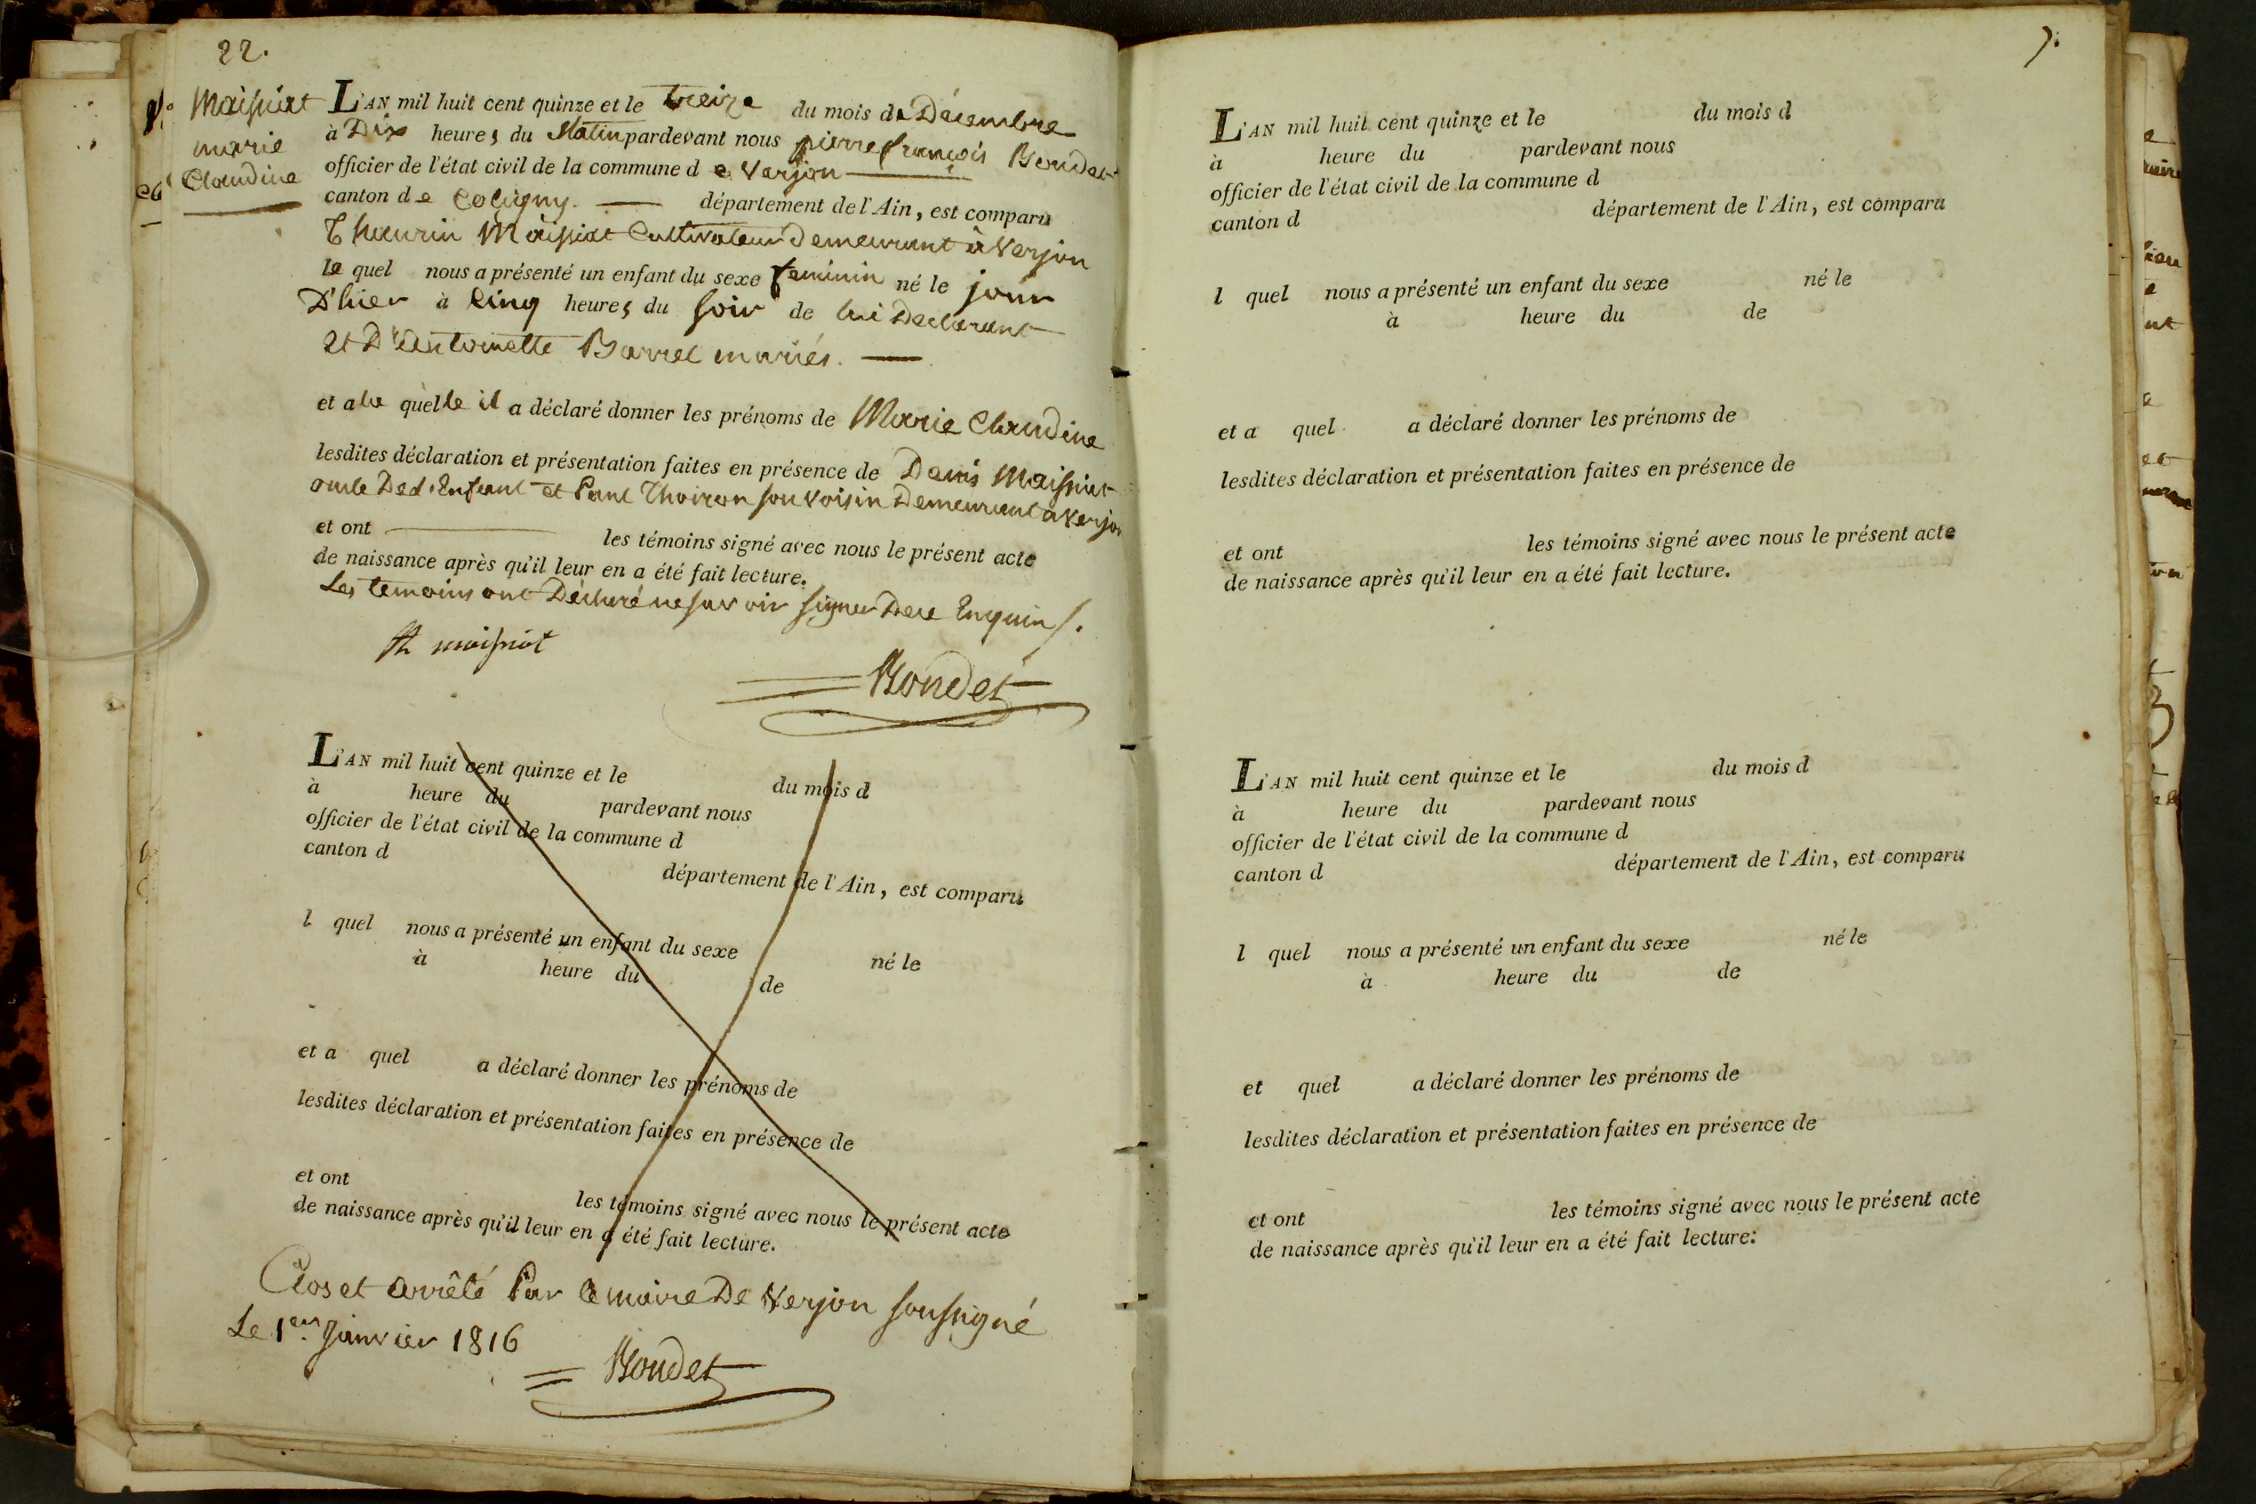 22.
Maissiat
marie
Claudine
L'AN mil huit cent quinze et le treize du mois de Décembre
à Dix heures du Matin pardevant nous pierre françois Bondet
officier de l'état civil de la commune de Verjon
canton de Coligny. département de l'Ain, est comparu
Thaurin Maissiat Cultivateur Demeurant à Verjon
le quel nous a présenté un enfant du sexe feminin né le jour
D'hier à Cinq heures du soir de lui Declarant
et D'Antoinette Barrel mariés.
et a la quelle il a déclaré donner les prénoms de Marie Claudine
lesdites déclaration et présentation faites en présence de Denis Maissiat
oncle Dud. Enfant et Paul Thoiron son voisin Demeurant a Verjon
et ont les témoins signé avec nous le présent acte
de naissance après qu'il leur en a été fait lecture.
Les temoins ont Déclaré ne savoir signer De ce Enquis.
th maissiat
Bondet
L'AN mil huit cent quinze et le du mois d
à heure du pardevant nous
officier de l'état civil de la commune d
canton d département de l'Ain, est comparu
l quel nous a présenté un enfant du sexe né le
à heure du de
et a quel a déclaré donner les prénoms de
lesdites déclaration et présentation faites en présence de
et ont les témoins signé avec nous le présent acte
de naissance après qu'il leur en a été fait lecture.
Clos et arrêté Par le maire De Verjon soussigné
Le 1er. Janvier 1816
Bondet
L'AN mil huit cent quinze et le du mois d
à heure du pardevant nous
officier de l'état civil de la commune d
canton d département de l'Ain, est comparu
l quel nous a présenté un enfant du sexe né le
à heure du de
et a quel a déclaré donner les prénoms de
lesdites déclaration et présentation faites en présence de
et ont les témoins signé avec nous le présent acte
de naissance après qu'il leur en a été fait lecture.
L'AN mil huit cent quinze et le du mois d
à heure du pardevant nous
officier de l'état civil de la commune d
canton d département de l'Ain, est comparu
l quel nous a présenté un enfant du sexe né le
à heure du de
et quel a déclaré donner les prénoms de
lesdites déclaration et présentation faites en présence de
et ont les témoins signé avec nous le présent acte
de naissance après qu'il leur en a été fait lecture.